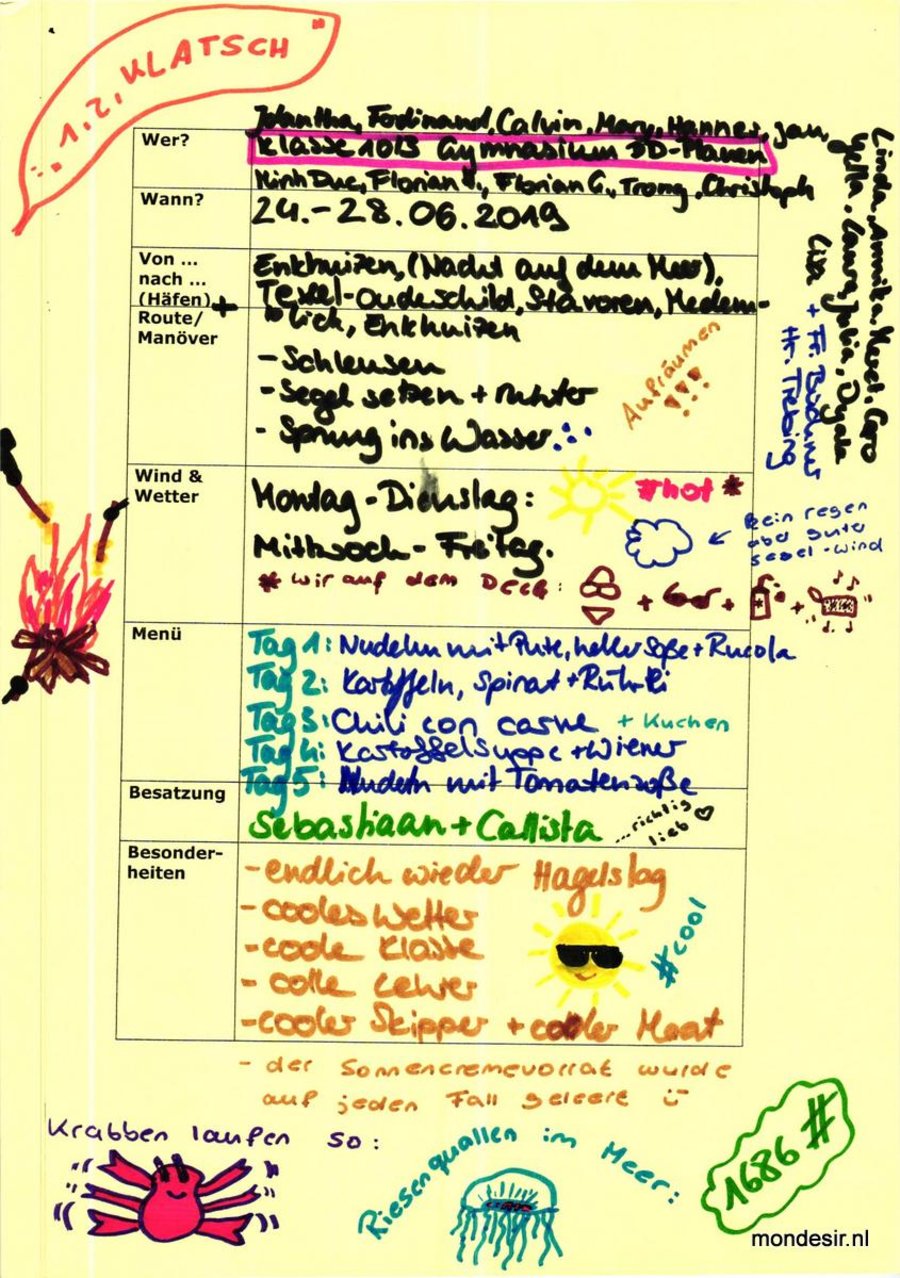 "1, 2, KLATSCH"
Jolantha, Ferdinand, Calvin, Mary, Hannes, Jan,
Wer?
Klasse 10/3 Gymnasium DD-Plauen
Minh Duc, Florian V., Florian G., Trong, Christoph
Linda, Annika, Merel, Caro
Yella, Laura, Julia, Dyala
Lisa + Fr. Büchner
Hr. Trebing
Wann?
24.-28.06.2019
Von ...
nach ...
(Häfen)
Enkhuizen, (Nacht auf dem Meer),
Texel-Oudeschild, Stavoren, Medem-
+
Route/
Manöver
blick, Enkhuizen
- Schleusen
- Segel setzen + runter
- Sprung ins Wasser
Aufräumen
!!!
Wind &
Wetter
Montag-Dienstag:
#hot *
Mittwoch-Freitag.
← kein regen
aber gute
segel-wind
* wir auf dem Deck:
+ + +
Menü
Tag 1: Nudeln mit Pute, heller Soße + Rucola
Tag 2: Kartoffeln, Spinat + Rührei
Tag 3: Chili con carne + Kuchen
Tag 4: Kartoffelsuppe + Wiener
Tag 5: Nudeln mit Tomatensoße
Besatzung
Sebastiaan + Callista
...richtig
lieb ♡
Besonder-
heiten
- endlich wieder Hagelslag
- cooles Wetter
- coole Klasse
- colle Lehrer
- cooler Skipper + cooler Maat
#cool
- der Sonnencremevorrat wurde
auf jeden Fall geleert
Krabben laufen so:
Riesenquallen im Meer:
1686 #
mondesir.nl